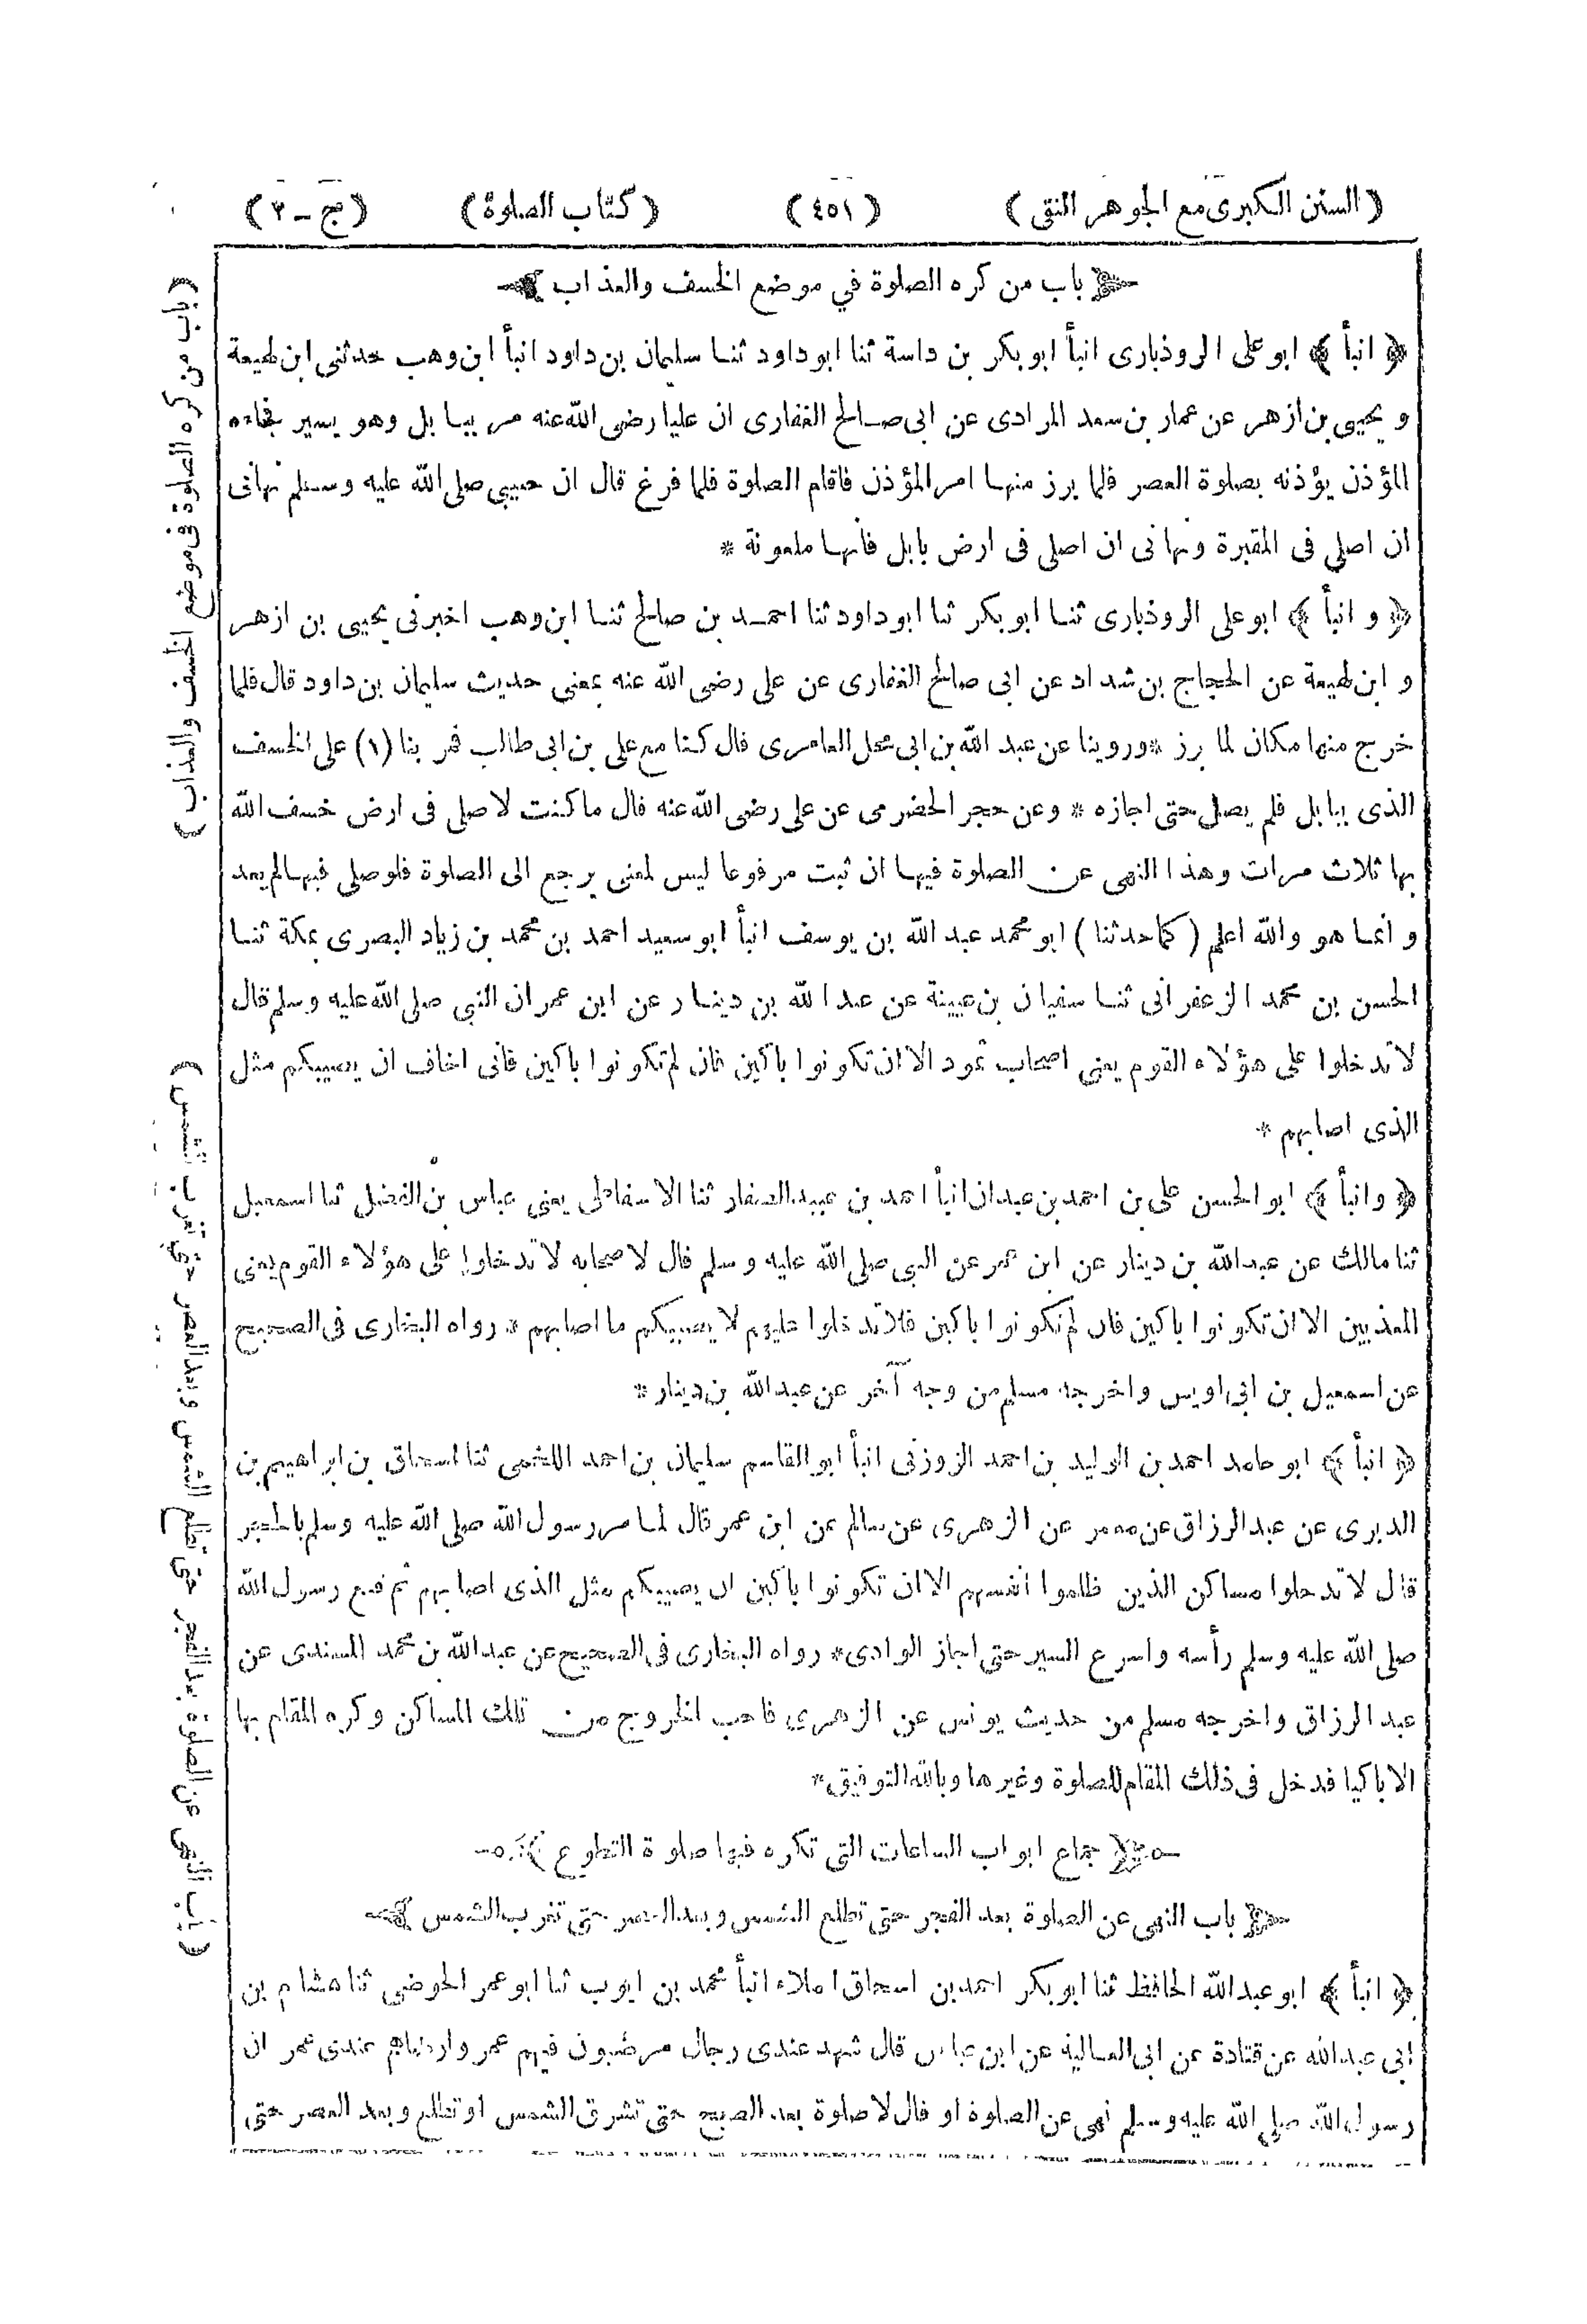 (السنن الكبرى مع الجوهر النقى) (٤٥١) (كتاب الصلوة) (ج - ٢)
باب من كره الصلوة في موضع الخسف والعذاب
﴿ انبأ ﴾ ابو على الروذبارى انبأ ابو بكر بن داسة ثنا ابو داود ثنا سليمان بن داود انبأ ابن وهب حدثنى ابن لهيعة
و يحيى بن ازهر عن عمار بن سعد المرادى عن ابى صالح الغفارى ان عليا رضى الله عنه مر ببابل وهو يسير فجاءه
المؤذن يؤذنه بصلوة العصر فلما برز منها امر المؤذن فاقام الصلوة فلما فرغ قال ان حبيبى صلى الله عليه وسلم نهانى
ان اصلى فى المقبرة ونهانى ان اصلى فى ارض بابل فانها ملعونة *
﴿ و انبأ ﴾ ابو على الروذبارى ثنا ابو بكر ثنا ابو داود ثنا احمد بن صالح ثنا ابن وهب اخبرنى يحيى بن ازهر
و ابن لهيعة عن الحجاج بن شداد عن ابى صالح الغفارى عن على رضى الله عنه بمعنى حديث سليمان بن داود قال فلما
خرج منها مكان لما برز * وروينا عن عبد الله بن ابى محل العامرى قال كنا مع على بن ابى طالب فمر بنا (١) على الخسف
الذى ببابل فلم يصل حتى اجازه * وعن حجر الحضرمى عن على رضى الله عنه قال ما كنت لاصلى فى ارض خسف الله
بها ثلاث مرات وهذا النهى عن الصلوة فيها ان ثبت مرفوعا ليس لمعنى يرجع الى الصلوة فلو صلى فيها لم يعد
و انما هو والله اعلم (كما حدثنا) ابو محمد عبد الله بن يوسف انبأ ابو سعيد احمد بن محمد بن زياد البصرى بمكة ثنا
الحسن بن محمد الزعفرانى ثنا سفيان بن عيينة عن عبد الله بن دينار عن ابن عمر ان النبى صلى الله عليه وسلم قال
لا تدخلوا على هؤلاء القوم يعنى اصحاب ثمود الا ان تكونوا باكين فان لم تكونوا باكين فانى اخاف ان يصيبكم مثل
الذى اصابهم *
﴿ وانبأ ﴾ ابو الحسن على بن احمد بن عبدان انبأ احمد بن عبيد الصفار ثنا الاسفاطى يعنى عباس بن الفضل ثنا اسمعيل
ثنا مالك عن عبد الله بن دينار عن ابن عمر عن النبى صلى الله عليه وسلم قال لاصحابه لا تدخلوا على هؤلاء القوم يعنى
المعذبين الا ان تكونوا باكين فان لم تكونوا باكين فلا تدخلوا عليهم لا يصيبكم ما اصابهم * رواه البخارى فى الصحيح
عن اسمعيل بن ابى اويس واخرجه مسلم من وجه آخر عن عبد الله بن دينار *
﴿ انبأ ﴾ ابو حامد احمد بن الوليد بن احمد الزوزنى انبأ ابو القاسم سليمان بن احمد اللخمى ثنا اسحاق بن ابراهيم بن
الدبرى عن عبد الرزاق عن معمر عن الزهرى عن سالم عن ابن عمر قال لما مر رسول الله صلى الله عليه وسلم بالحجر
قال لا تدخلوا مساكن الذين ظلموا انفسهم الا ان تكونوا باكين ان يصيبكم مثل الذى اصابهم ثم قنع رسول الله
صلى الله عليه وسلم رأسه واسرع السير حتى اجاز الوادى * رواه البخارى فى الصحيح عن عبد الله بن محمد المسندى عن
عبد الرزاق واخرجه مسلم من حديث يونس عن الزهرى فاحب الخروج من تلك المساكن وكره المقام بها
الا باكيا فدخل فى ذلك المقام للصلوة وغيرها وبالله التوفيق *
جماع ابواب الساعات التى تكره فيها صلوة التطوع
باب النهى عن الصلوة بعد الفجر حتى تطلع الشمس وبعد العصر حتى تغرب الشمس
﴿ انبأ ﴾ ابو عبد الله الحافظ ثنا ابو بكر احمد بن اسحاق املاء انبأ محمد بن ايوب ثنا ابو عمر الحوضى ثنا هشام بن
ابى عبد الله عن قتادة عن ابى العالية عن ابن عباس قال شهد عندى رجال مرضيون فيهم عمر وارضاهم عندى عمر ان
رسول الله صلى الله عليه وسلم نهى عن الصلوة او قال لا صلوة بعد الصبح حتى تشرق الشمس او تطلع وبعد العصر حتى
(باب من كره الصلوة فى موضع الخسف والعذاب)
(باب النهى عن الصلوة بعد الفجر حتى تطلع الشمس وبعد العصر حتى تغرب الشمس)